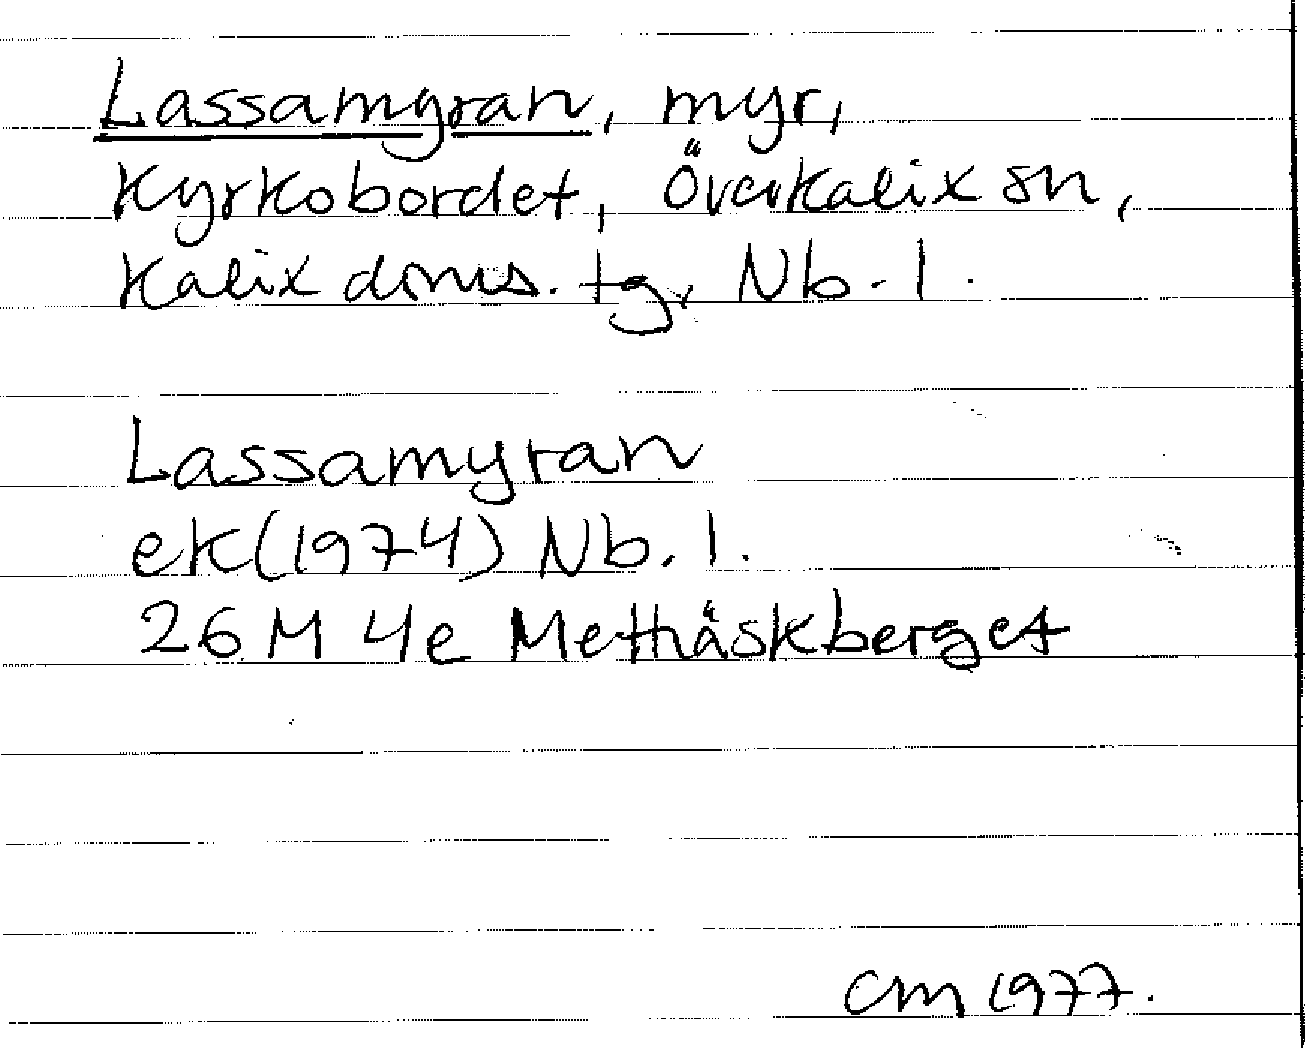 Lassamyran, myr,
Kyrkobordet, Överkalix sn,
Kalix doms. tg, Nb. l.
Lassamyran
ek (1974) Nb. l.
26 M 4e Metthäskberget
CM 1977.